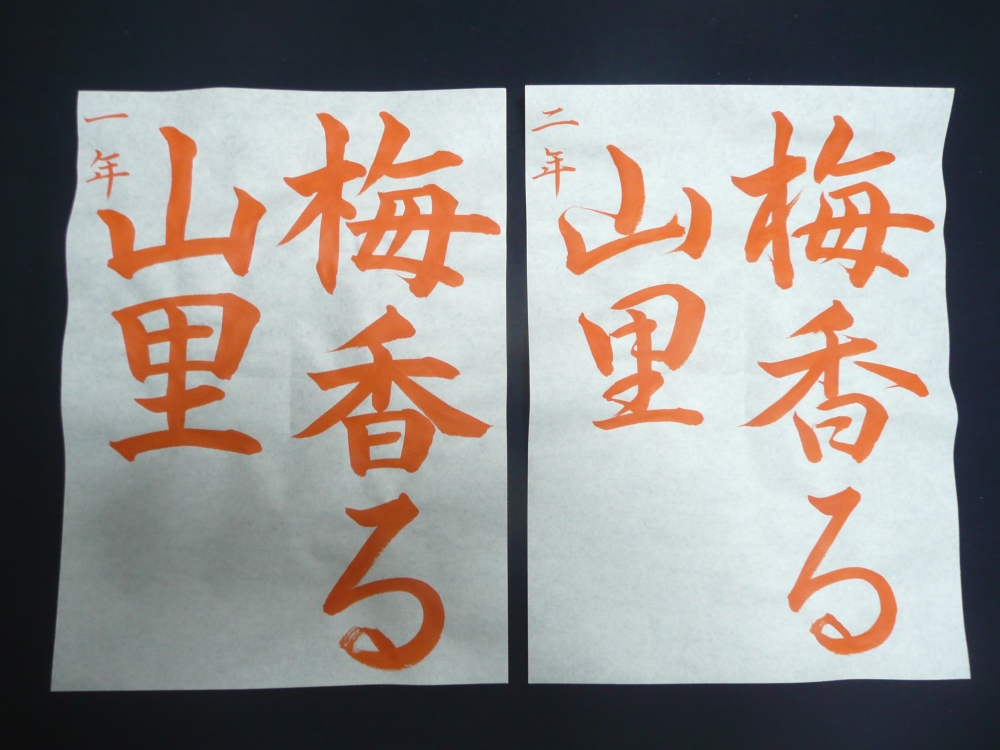 梅香る
山里
一年
梅香る
山里
二年